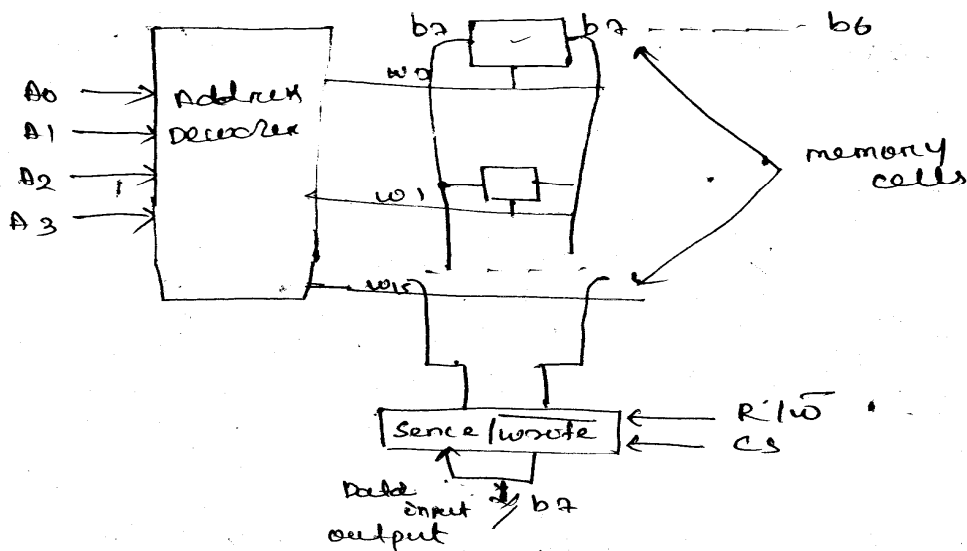 b7 b7 b6
A0
A1
A2
A3
Address
Decoder
w0
w1
w15
memory
cells
Sence / wrote
R / w
CS
Data
input
output
b7